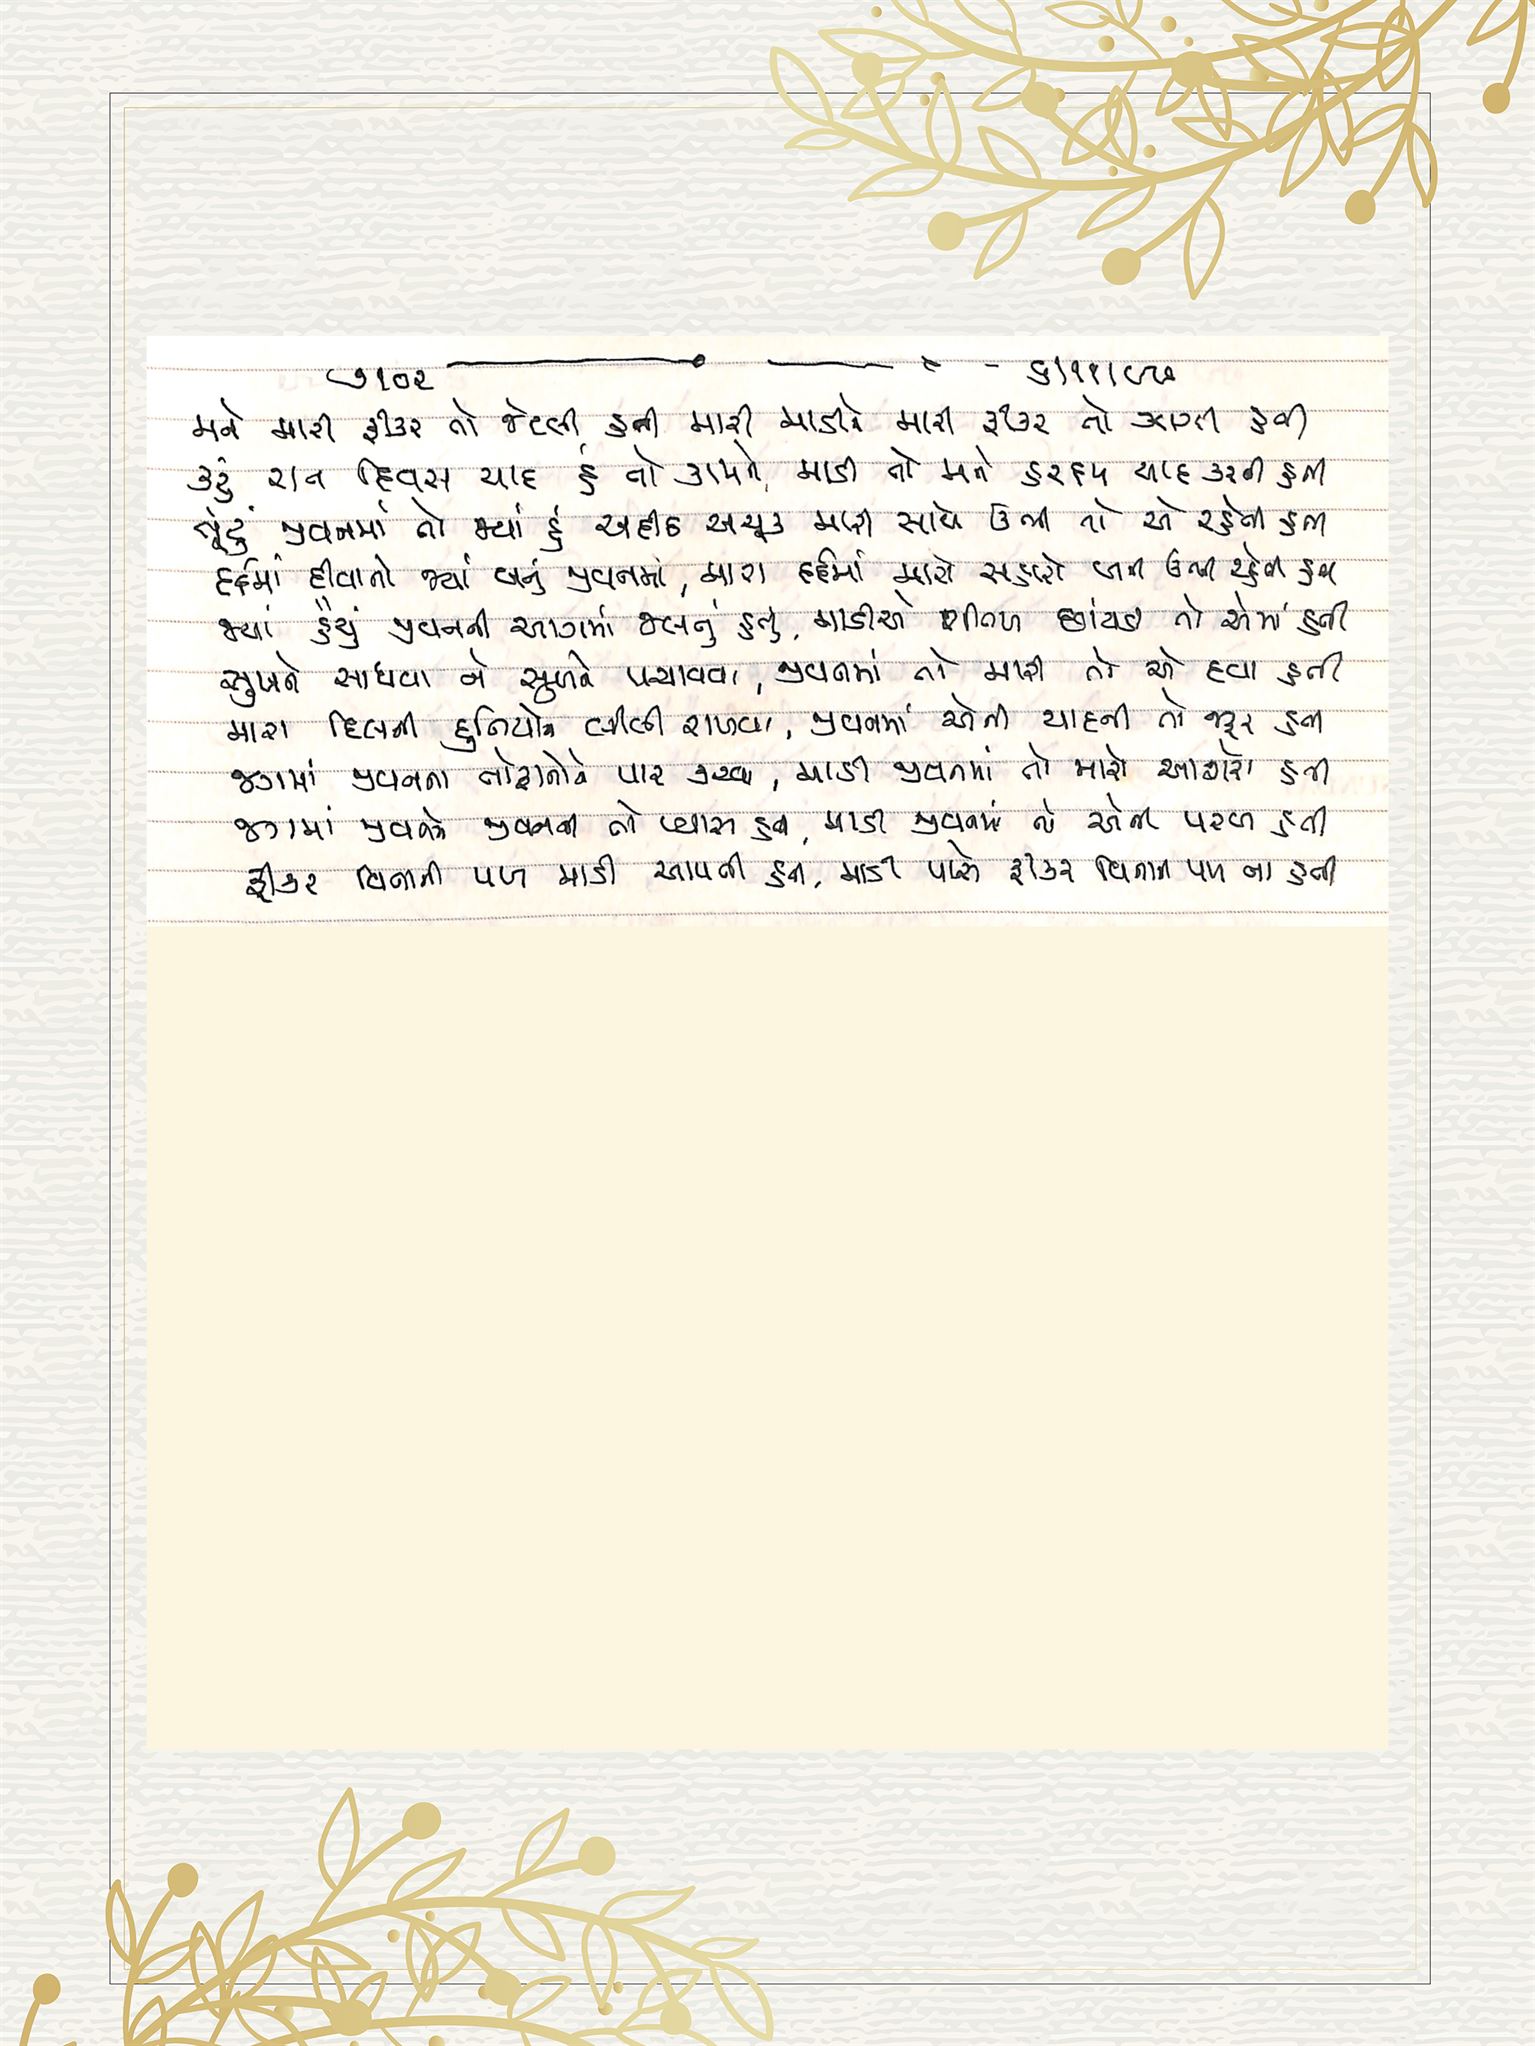 ૭૧૦૨
મને મારી ફીકર તો જેટલી હતી મારી માડીને મારી ફીકર તો ઝાઝી હતી
કરું રાત દિવસ યાદ હું તો તને, માડી તો મને હરદમ યાદ કરતી હતી
તૂટું જીવનમાં તો જ્યાં હું અહીંહ અચૂક મારી સાથે ઉભી તો એ રહેતી હતી
દર્દમાં દીવાનો જ્યાં બનું જીવનમાં, મારા દર્દમાં મારો સહારો બની ઉભી રહેતી હતી
જ્યાં હૈયું જીવનની આગમાં જલતું હતું, માડીએ શીતળ છાંયડી તો એમાં હતી
સુખને સાધવા ને સુખને પચાવવા, જીવનમાં તો મારી તો એ દવા હતી
મારા દિલની દુનિયાને લીલી રાખવા, જીવનમાં એની યાદની તો જરૂર હતી
જગમાં જીવનના તોફાનોને પાર કરવા, માડી જીવનમાં તો મારો આશરો હતી
જગમાં જીવને જીવનની તો પ્યાસ હતી, માડી જીવનમાં તો એની પરબ હતી
ફીકર વિનાની પળ માડી આપતી હતી, માડી પાસે ફીકર વિનાની પળ ના હતી